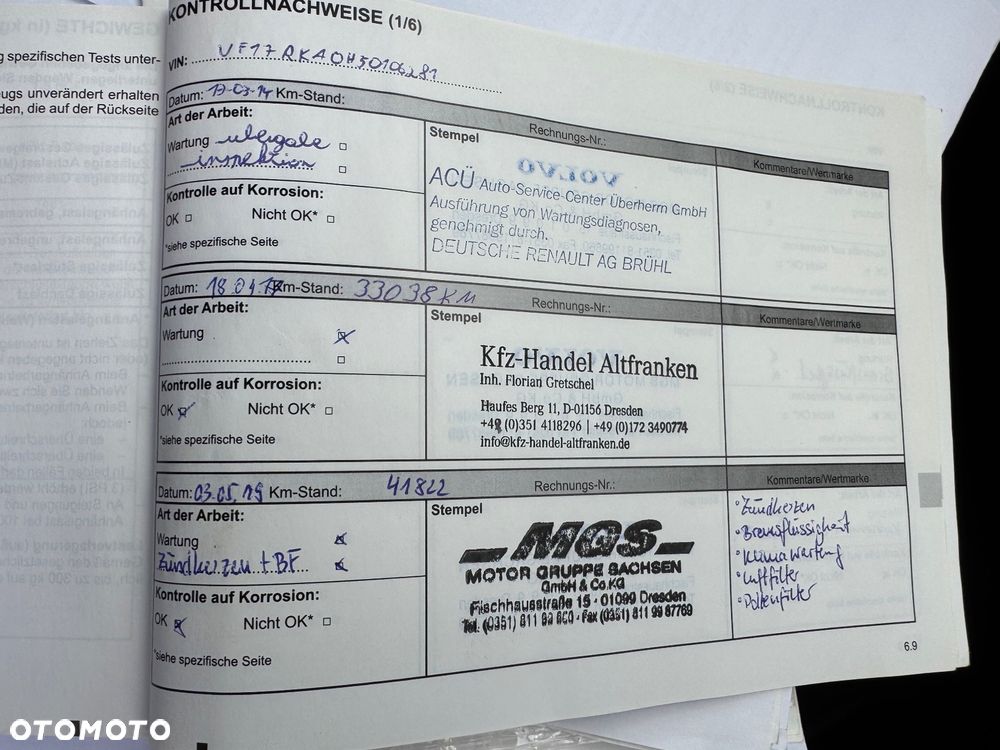 KONTROLLNACHWEISE (1/6)
spezifischen Tests unter-
ugs unverändert erhalten
den, die auf der Rückseite
VIN: VF17RKA0H50106281
Datum: 17-03-14 Km-Stand:
Rechnungs-Nr.:
Kommentare/Wertmarke
Art der Arbeit:
Wartung übergabe
inspektion
Kontrolle auf Korrosion:
OK Nicht OK*
*siehe spezifische Seite
Stempel
ACÜ Auto-Service-Center Überherrn GmbH
Ausführung von Wartungsdiagnosen,
genehmigt durch.
DEUTSCHE RENAULT AG BRÜHL
Datum: 18.04.17 Km-Stand: 33038 KM
Rechnungs-Nr.:
Kommentare/Wertmarke
Art der Arbeit:
Wartung
Kontrolle auf Korrosion:
OK Nicht OK*
*siehe spezifische Seite
Stempel
Kfz-Handel Altfranken
Inh. Florian Gretschel
Haufes Berg 11, D-01156 Dresden
+49 (0)351 4118296 | +49 (0)172 3490774
info@kfz-handel-altfranken.de
Datum: 03.05.19 Km-Stand: 41822
Rechnungs-Nr.:
Kommentare/Wertmarke
Art der Arbeit:
Wartung
Zündkerzen + BF
Kontrolle auf Korrosion:
OK Nicht OK*
*siehe spezifische Seite
Stempel
MGS
MOTOR GRUPPE SACHSEN
GmbH & Co.KG
Fischhausstraße 15 - 01099 Dresden
Tel. (0351) 811 99 660 - Fax (0351) 811 99 67769
• Zündkerzen
• Bremsflüssigkeit
• Klimawartung
• Luftfilter
• Pollenfilter
6.9
OTOMOTO